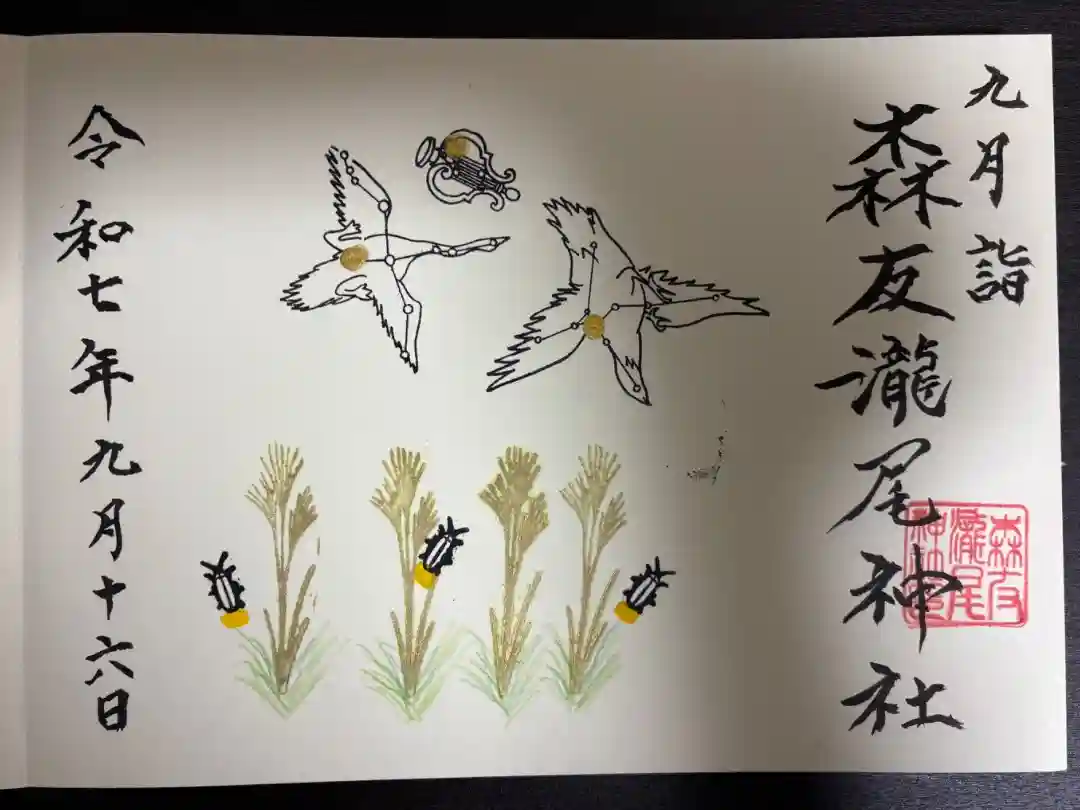 九月詣
森友瀧尾神社
森友
瀧尾
神社
令和七年九月十六日